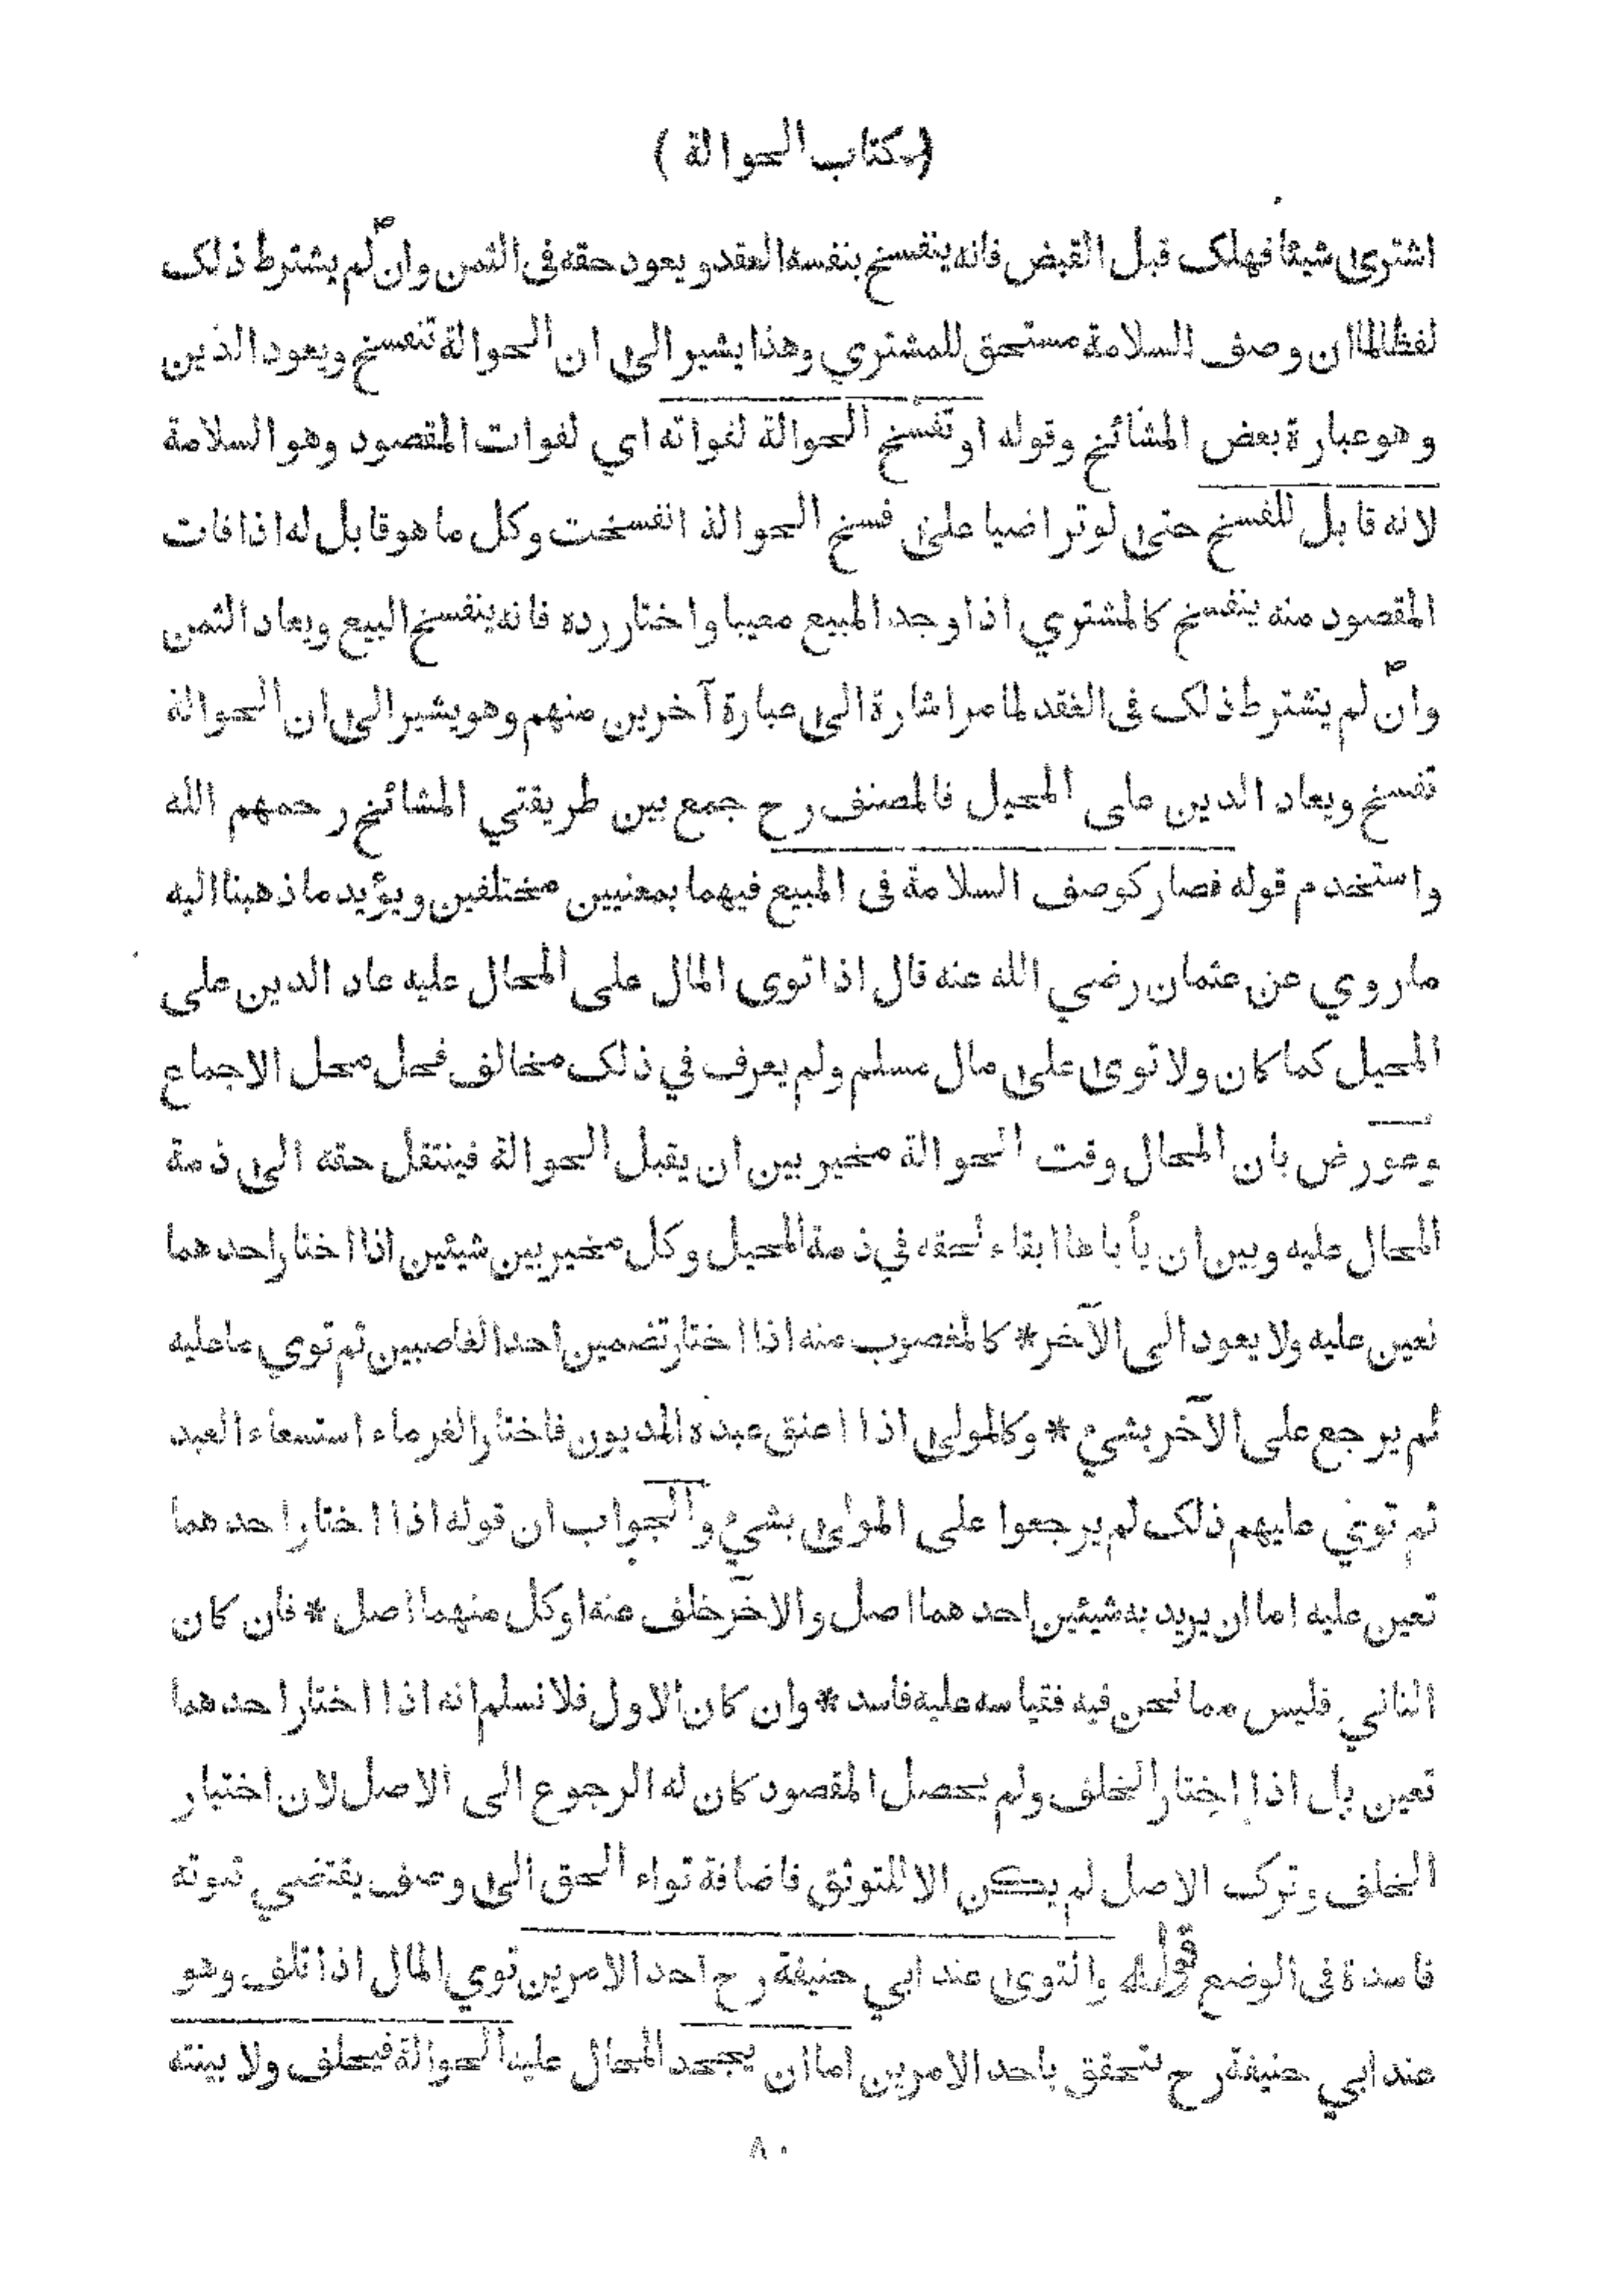 ( كتاب الحوالة )
اشترى شيئا فهلك قبل القبض فانه ينفسخ بنفسه العقد و يعود حقه فى الثمن وان لم يشترط ذلك
لفظا لما ان وصف السلامة مستحق للمشتري وهذا يشير الى ان الحوالة تنفسخ ويعود الدين
وهو عبارة بعض المشائخ وقوله او تفسخ الحوالة لفواته اي لفوات المقصود وهو السلامة
لانه قابل للفسخ حتى لو تراضيا على فسخ الحوالة انفسخت وكل ما هو قابل له اذا فات
المقصود منه ينفسخ كالمشتري اذا وجد المبيع معيبا واختار رده فانه ينفسخ البيع ويعاد الثمن
وان لم يشترط ذلك فى العقد لما مر اشارة الى عبارة آخرين منهم وهو يشير الى ان الحوالة
تفسخ ويعاد الدين على المحيل فالمصنف رح جمع بين طريقتي المشائخ رحمهم الله
واستخدم قوله فصار كوصف السلامة فى المبيع فيهما بمعنيين مختلفين ويؤيد ما ذهبنا اليه
ما روي عن عثمان رضي الله عنه قال اذا توى المال على المحال عليه عاد الدين على
المحيل كما كان ولا توى على مال مسلم ولم يعرف في ذلك مخالف فحل محل الاجماع
وعورض بان المحال وقت الحوالة مخير بين ان يقبل الحوالة فينتقل حقه الى ذمة
المحال عليه وبين ان يأباها ابقاء لحقه في ذمة المحيل وكل مخير بين شيئين اذا اختار احدهما
تعين عليه ولا يعود الى الآخر * كالمغصوب منه اذا اختار تضمين احد الغاصبين ثم توي ما عليه
لم يرجع على الآخر بشيء * وكالمولى اذا اعتق عبده المديون فاختار الغرماء استسعاء العبد
ثم توي عليهم ذلك لم يرجعوا على المولى بشيء والجواب ان قوله اذا اختار احدهما
تعين عليه اما ان يريد به شيئين احدهما اصل والآخر خلف عنه او كل منهما اصل * فان كان
الثاني فليس مما نحن فيه فقياسه عليه فاسد * وان كان الاول فلا نسلم انه اذا اختار احدهما
تعين بل اذا اختار الخلف ولم يحصل المقصود كان له الرجوع الى الاصل لان اختيار
الخلف وترك الاصل لم يكن الا للتوثق فاضافة تواء الحق الى وصف يقتضي ثبوته
فاسدة فى الوضع قوله والتوى عند ابي حنيفة رح احد الامرين توي المال اذا تلف وهو
عند ابي حنيفة رح يتحقق باحد الامرين اما ان يجحد المحال عليه الحوالة فيحلف ولا بينته
٨٠